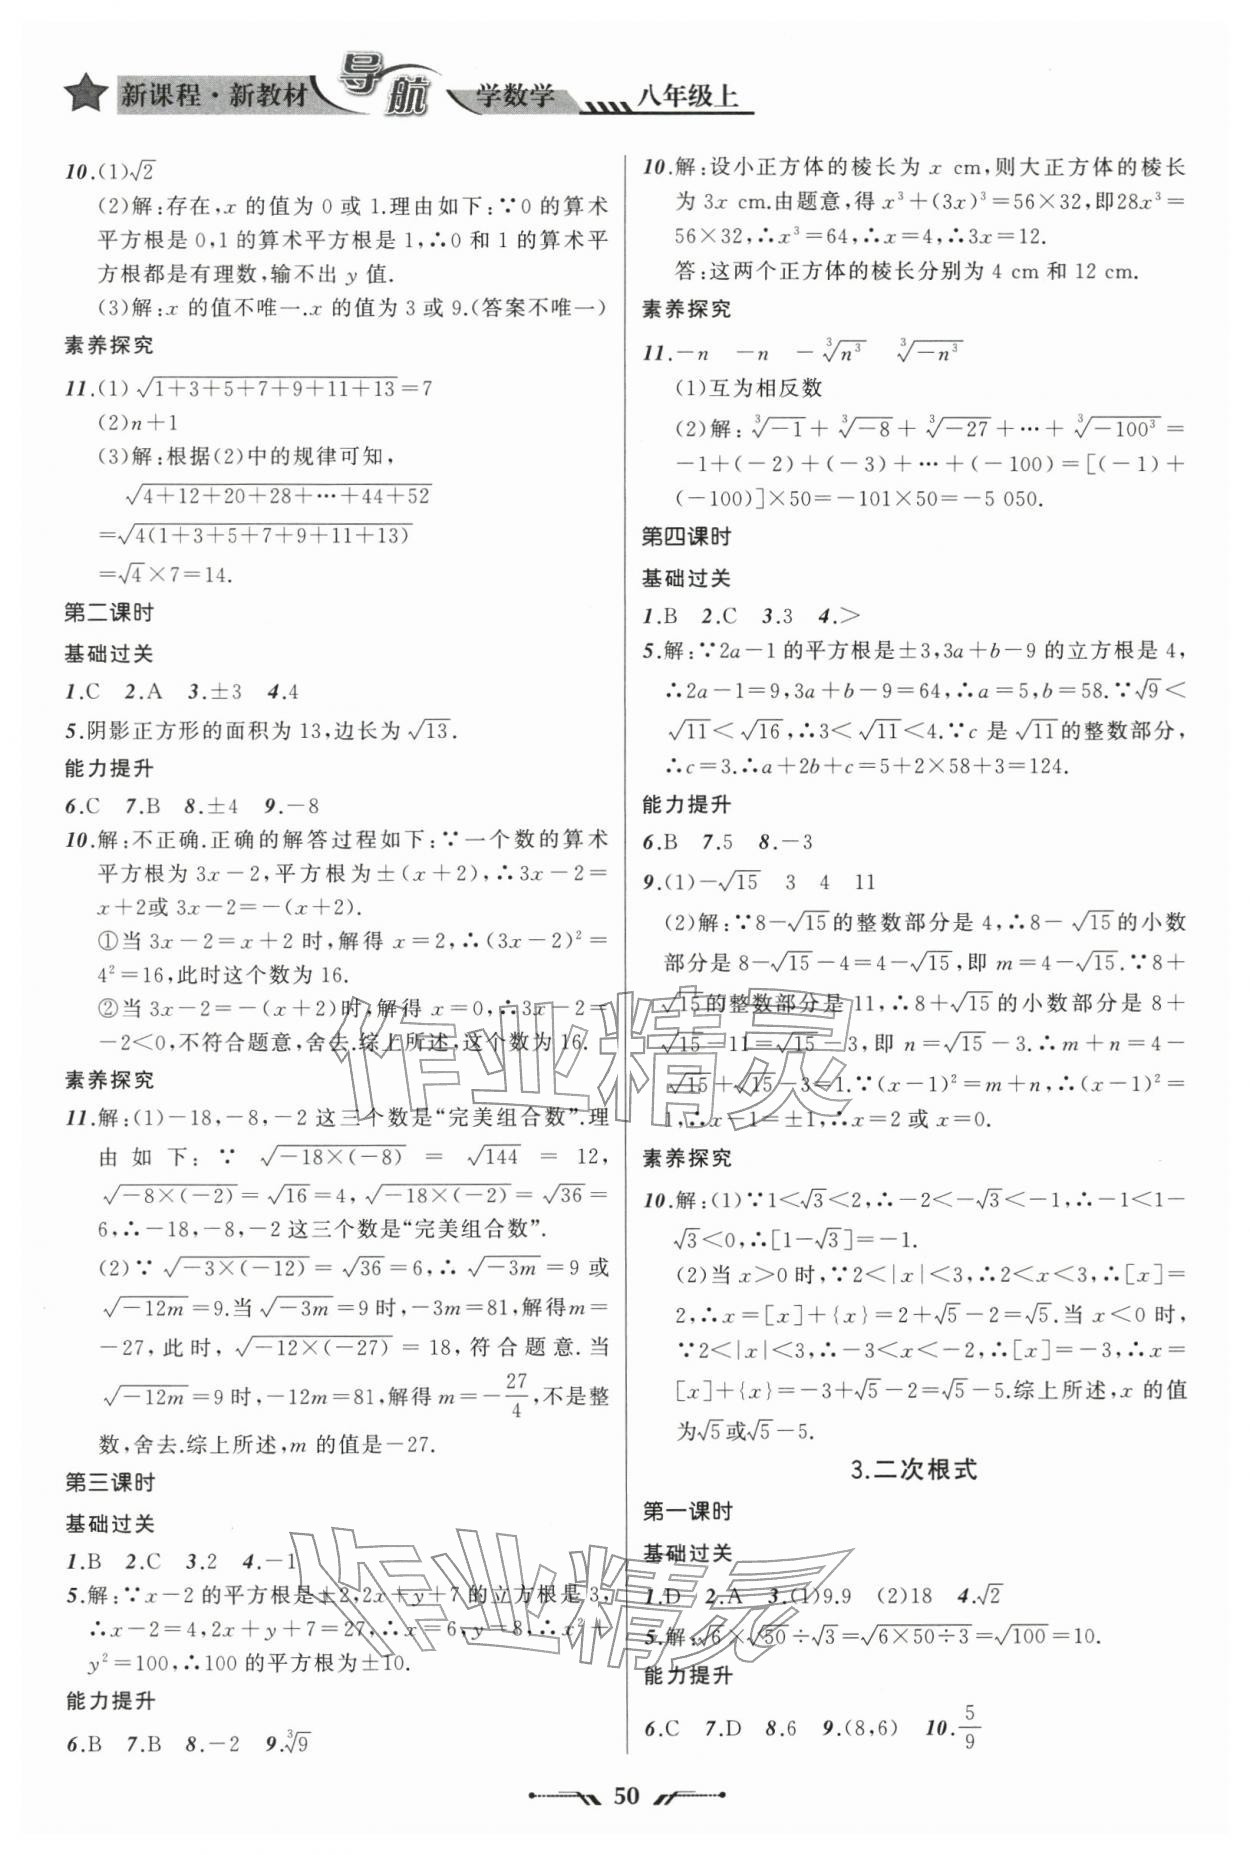 新课程·新教材 导航 学数学 八年级上
10.(1)√2
(2)解:存在,x 的值为 0 或 1.理由如下:∵0 的算术
平方根是 0,1 的算术平方根是 1,∴0 和 1 的算术平
方根都是有理数,输不出 y 值.
(3)解:x 的值不唯一.x 的值为 3 或 9.(答案不唯一)
素养探究
11.(1) √(1+3+5+7+9+11+13)=7
(2)n+1
(3)解:根据(2)中的规律可知,
√(4+12+20+28+…+44+52)
=√(4(1+3+5+7+9+11+13))
=√4×7=14.
第二课时
基础过关
1.C 2.A 3.±3 4.4
5.阴影正方形的面积为 13,边长为√13.
能力提升
6.C 7.B 8.±4 9.-8
10.解:不正确.正确的解答过程如下:∵一个数的算术
平方根为 3x-2,平方根为±(x+2),∴3x-2=
x+2或 3x-2=-(x+2).
①当 3x-2=x+2 时,解得 x=2,∴(3x-2)²=
4²=16,此时这个数为 16.
②当 3x-2=-(x+2)时,解得 x=0,∴3x-2=
-2<0,不符合题意,舍去.综上所述,这个数为 16.
素养探究
11.解:(1)-18,-8,-2 这三个数是“完美组合数”.理
由如下:∵ √(-18×(-8)) = √144 = 12,
√(-8×(-2))=√16=4,√(-18×(-2))=√36=
6,∴-18,-8,-2 这三个数是“完美组合数”.
(2)∵ √(-3×(-12))=√36=6,∴ √(-3m)=9 或
√(-12m)=9.当√(-3m)=9 时,-3m=81,解得m=
-27,此时,√(-12×(-27))=18,符合题意.当
√(-12m)=9 时,-12m=81,解得 m=-27/4,不是整
数,舍去.综上所述,m 的值是-27.
第三课时
基础过关
1.B 2.C 3.2 4.-1
5.解:∵x-2 的平方根是±2,2x+y+7 的立方根是 3,
∴x-2=4,2x+y+7=27,∴x=6,y=8,∴x²+
y²=100,∴100 的平方根为±10.
能力提升
6.B 7.B 8.-2 9.∛9
10.解:设小正方体的棱长为 x cm,则大正方体的棱长
为 3x cm.由题意,得 x³+(3x)³=56×32,即28x³=
56×32,∴x³=64,∴x=4,∴3x=12.
答:这两个正方体的棱长分别为 4 cm 和 12 cm.
素养探究
11.-n -n -∛(n³) ∛(-n³)
(1)互为相反数
(2)解:∛(-1)+∛(-8)+∛(-27)+…+∛(-100³)=
-1+(-2)+(-3)+…+(-100)=[(-1)+
(-100)]×50=-101×50=-5 050.
第四课时
基础过关
1.B 2.C 3.3 4.>
5.解:∵2a-1 的平方根是±3,3a+b-9 的立方根是 4,
∴2a-1=9,3a+b-9=64,∴a=5,b=58.∵√9<
√11<√16,∴3<√11<4.∵c 是√11的整数部分,
∴c=3.∴a+2b+c=5+2×58+3=124.
能力提升
6.B 7.5 8.-3
9.(1)-√15 3 4 11
(2)解:∵8-√15的整数部分是 4,∴8-√15的小数
部分是 8-√15-4=4-√15,即 m=4-√15.∵8+
√15的整数部分是 11,∴8+√15的小数部分是 8+
√15-11=√15-3,即 n=√15-3.∴m+n=4-
√15+√15-3=1.∵(x-1)²=m+n,∴(x-1)²=
1,∴x-1=±1,∴x=2 或 x=0.
素养探究
10.解:(1)∵1<√3<2,∴-2<-√3<-1,∴-1<1-
√3<0,∴[1-√3]=-1.
(2)当 x>0 时,∵2<|x|<3,∴2<x<3,∴[x]=
2,∴x=[x]+{x}=2+√5-2=√5.当 x<0 时,
∵2<|x|<3,∴-3<x<-2,∴[x]=-3,∴x=
[x]+{x}=-3+√5-2=√5-5.综上所述,x 的值
为√5或√5-5.
3.二次根式
第一课时
基础过关
1.D 2.A 3.(1)9.9 (2)18 4.√2
5.解:√6×√50÷√3=√(6×50÷3)=√100=10.
能力提升
6.C 7.D 8.6 9.(8,6) 10.5/9
50
作业精灵
作业精灵